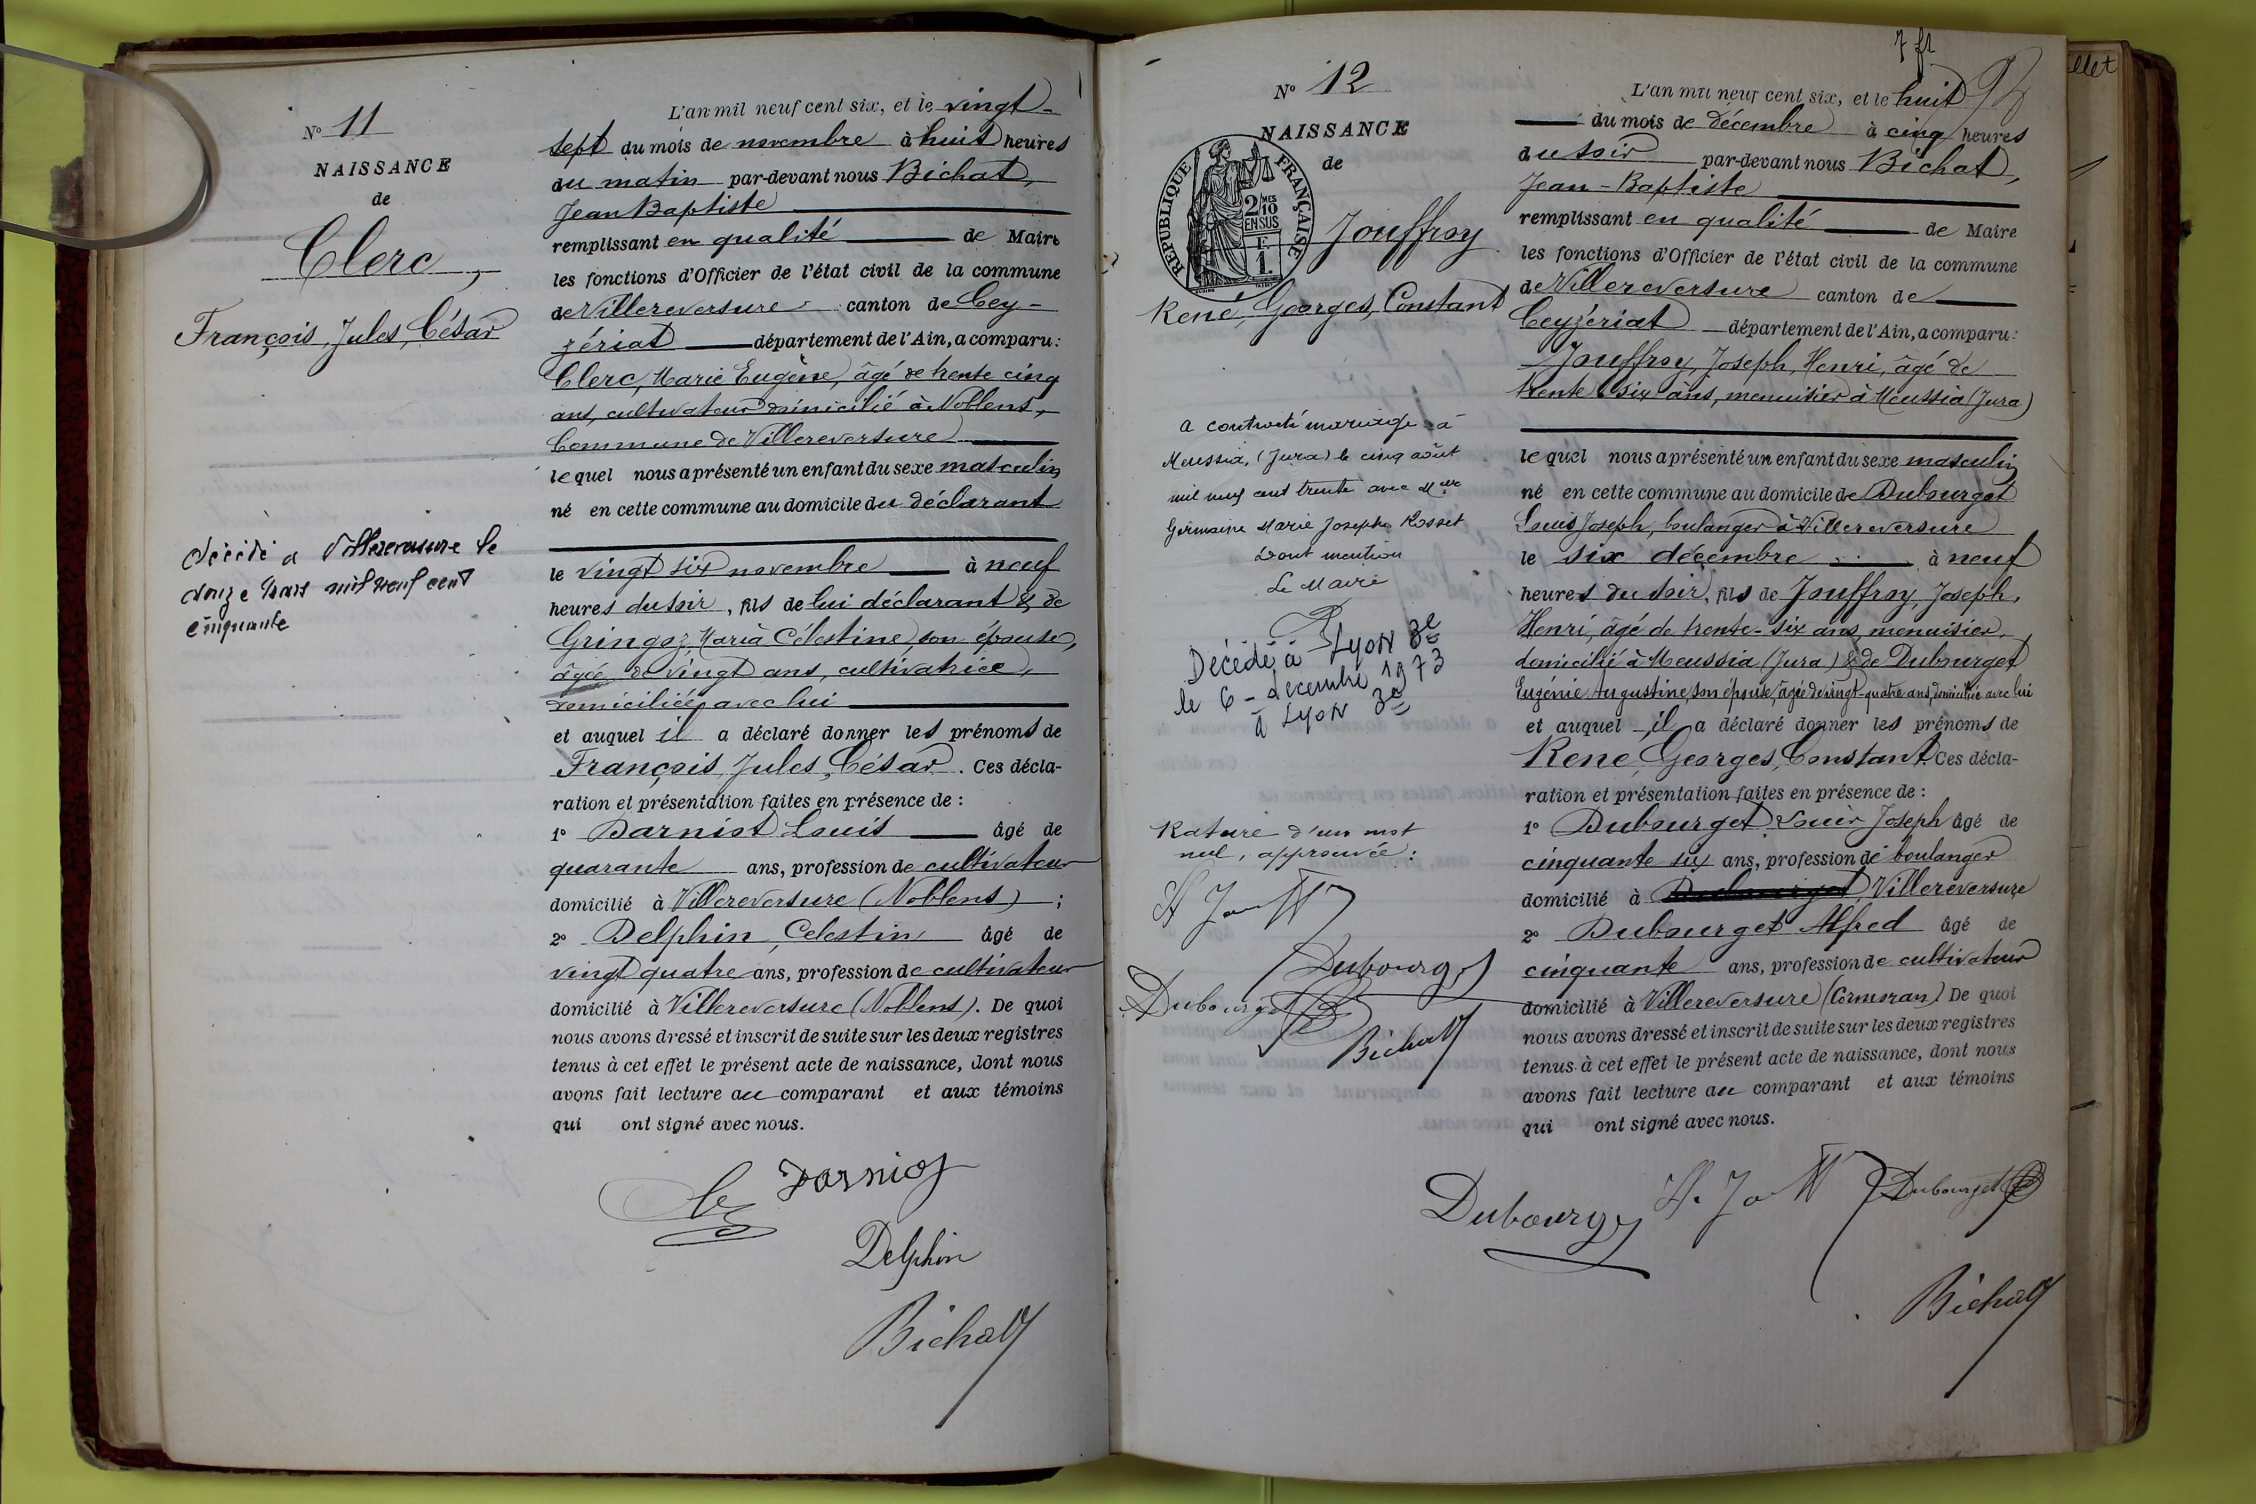 N° 11
NAISSANCE
de
Clerc,
François, Jules, César
décédé a Villereversure le
douze Mars mil neuf cent
cinquante
L'an mil neuf cent six, et le vingt-
sept du mois de novembre à huit heures
du matin par-devant nous Bichat,
Jean Baptiste
remplissant en qualité de Maire
les fonctions d'Officier de l'état civil de la commune
de Villereversure canton de Cey-
zériat département de l'Ain, a comparu :
Clerc, Marie Eugène, âgé de trente cinq
ans, cultivateur domicilié à Noblens,
Commune de Villereversure
lequel nous a présenté un enfant du sexe masculin
né en cette commune au domicile du déclarant
le vingt six novembre à neuf
heures du soir, fils de lui déclarant & de
Gringoz, Maria Célestine, son épouse,
âgée de vingt ans, cultivatrice,
domiciliée avec lui
et auquel il a déclaré donner les prénoms de
François, Jules, César. Ces décla-
ration et présentation faites en présence de :
1° Darniot Louis âgé de
quarante ans, profession de cultivateur
domicilié à Villereversure (Noblens) ;
2° Delphin, Celestin âgé de
vingt quatre ans, profession de cultivateur
domicilié à Villereversure (Noblens). De quoi
nous avons dressé et inscrit de suite sur les deux registres
tenus à cet effet le présent acte de naissance, dont nous
avons fait lecture au comparant et aux témoins
qui ont signé avec nous.
Darniot
Delphin
Bichat
N° 12
NAISSANCE
de
RÉPUBLIQUE FRANÇAISE
2/10 MES
EN SUS
F
1.
Jouffroy
René, Georges, Constant
a contracté mariage à
Meussia, (Jura) le cinq août
mil neuf cent trente avec Melle
Germaine Marie Josephe Rosset
Dont mention
Le Maire
Décédé à Lyon 3e
le 6 - décembre 1973
à Lyon 3e
Rature d'un mot
nul, approuvée :
Dubourget
Dubourget
Bichat
7 ft
L'an mil neuf cent six, et le huit
du mois de décembre à cinq heures
du soir par-devant nous Bichat,
Jean-Baptiste
remplissant en qualité de Maire
les fonctions d'Officier de l'état civil de la commune
de Villereversure canton de
Ceyzériat département de l'Ain, a comparu :
Jouffroy, Joseph, Henri, âgé de
trente six ans, menuisier à Meussia (Jura)
lequel nous a présenté un enfant du sexe masculin
né en cette commune au domicile de Dubourget
Louis Joseph, boulanger à Villereversure
le six décembre à neuf
heures du soir, fils de Jouffroy, Joseph,
Henri, âgé de trente-six ans, menuisier,
domicilié à Meussia (Jura) & de Dubourget
Eugénie Augustine, son épouse, âgée de vingt-quatre ans, domiciliée avec lui
et auquel il a déclaré donner les prénoms de
René, Georges, Constant. Ces décla-
ration et présentation faites en présence de :
1° Dubourget Louis Joseph âgé de
cinquante six ans, profession de boulanger
domicilié à Dubourget Villereversure
2° Dubourget Alfred âgé de
cinquante ans, profession de cultivateur
domicilié à Villereversure (Cormoran) De quoi
nous avons dressé et inscrit de suite sur les deux registres
tenus à cet effet le présent acte de naissance, dont nous
avons fait lecture au comparant et aux témoins
qui ont signé avec nous.
Dubourget
Dubourget
Bichat